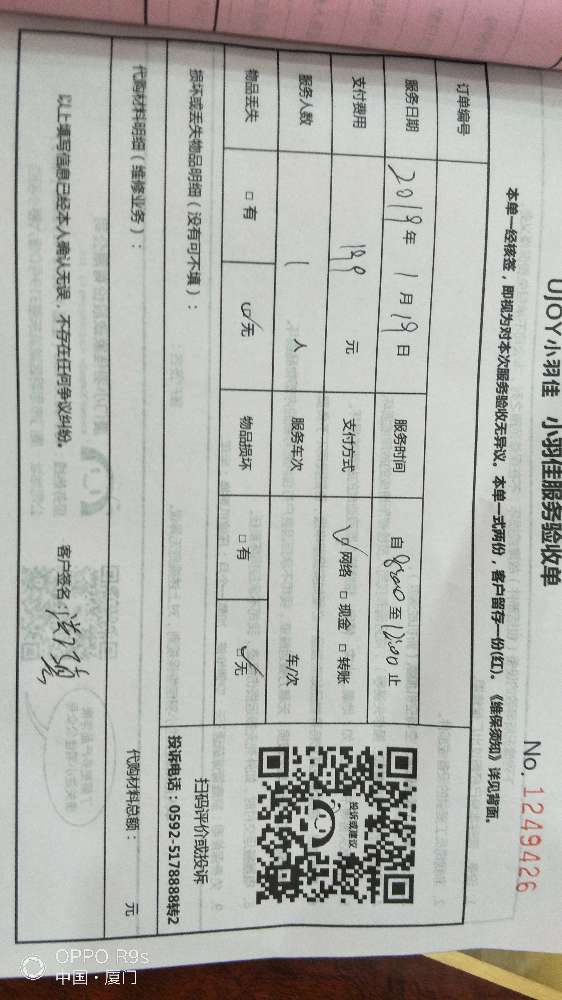 UJOY小羽佳 小羽佳服务验收单
No. 1249426
本单一经核签，即视为对本次服务验收无异议。本单一式两份，客户留存一份(红)。《维保须知》详见背面。
订单编号
服务日期 2019年1月19日 服务时间 自8:00至12:00止
支付费用 199元 支付方式 ☑网络 □现金 □转账
服务人数 1人 服务车次 车/次
物品丢失 □有 ☑无 物品损坏 □有 ☑无
投诉或建议
扫码评价或投诉
投诉电话：0592-5178888转2
损坏或丢失物品明细（没有可不填）：
代购材料明细（维修业务）： 代购材料总额： 元
以上填写信息已经本人确认无误，不存在任何争议纠纷。 客户签名：
OPPO R9s
中国·厦门